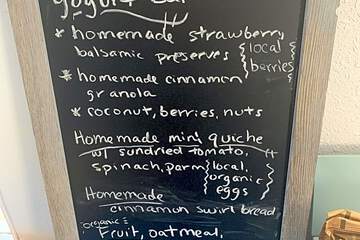 yogurt bar
* homemade strawberry
balsamic preserves
{ local
berries }
* homemade cinnamon
granola
* coconut, berries, nuts
Homemade mini quiche
w/ sundried tomato,
spinach, parm
{ local,
organic
eggs }
Homemade
cinnamon swirl bread
organic:
Fruit, oatmeal,